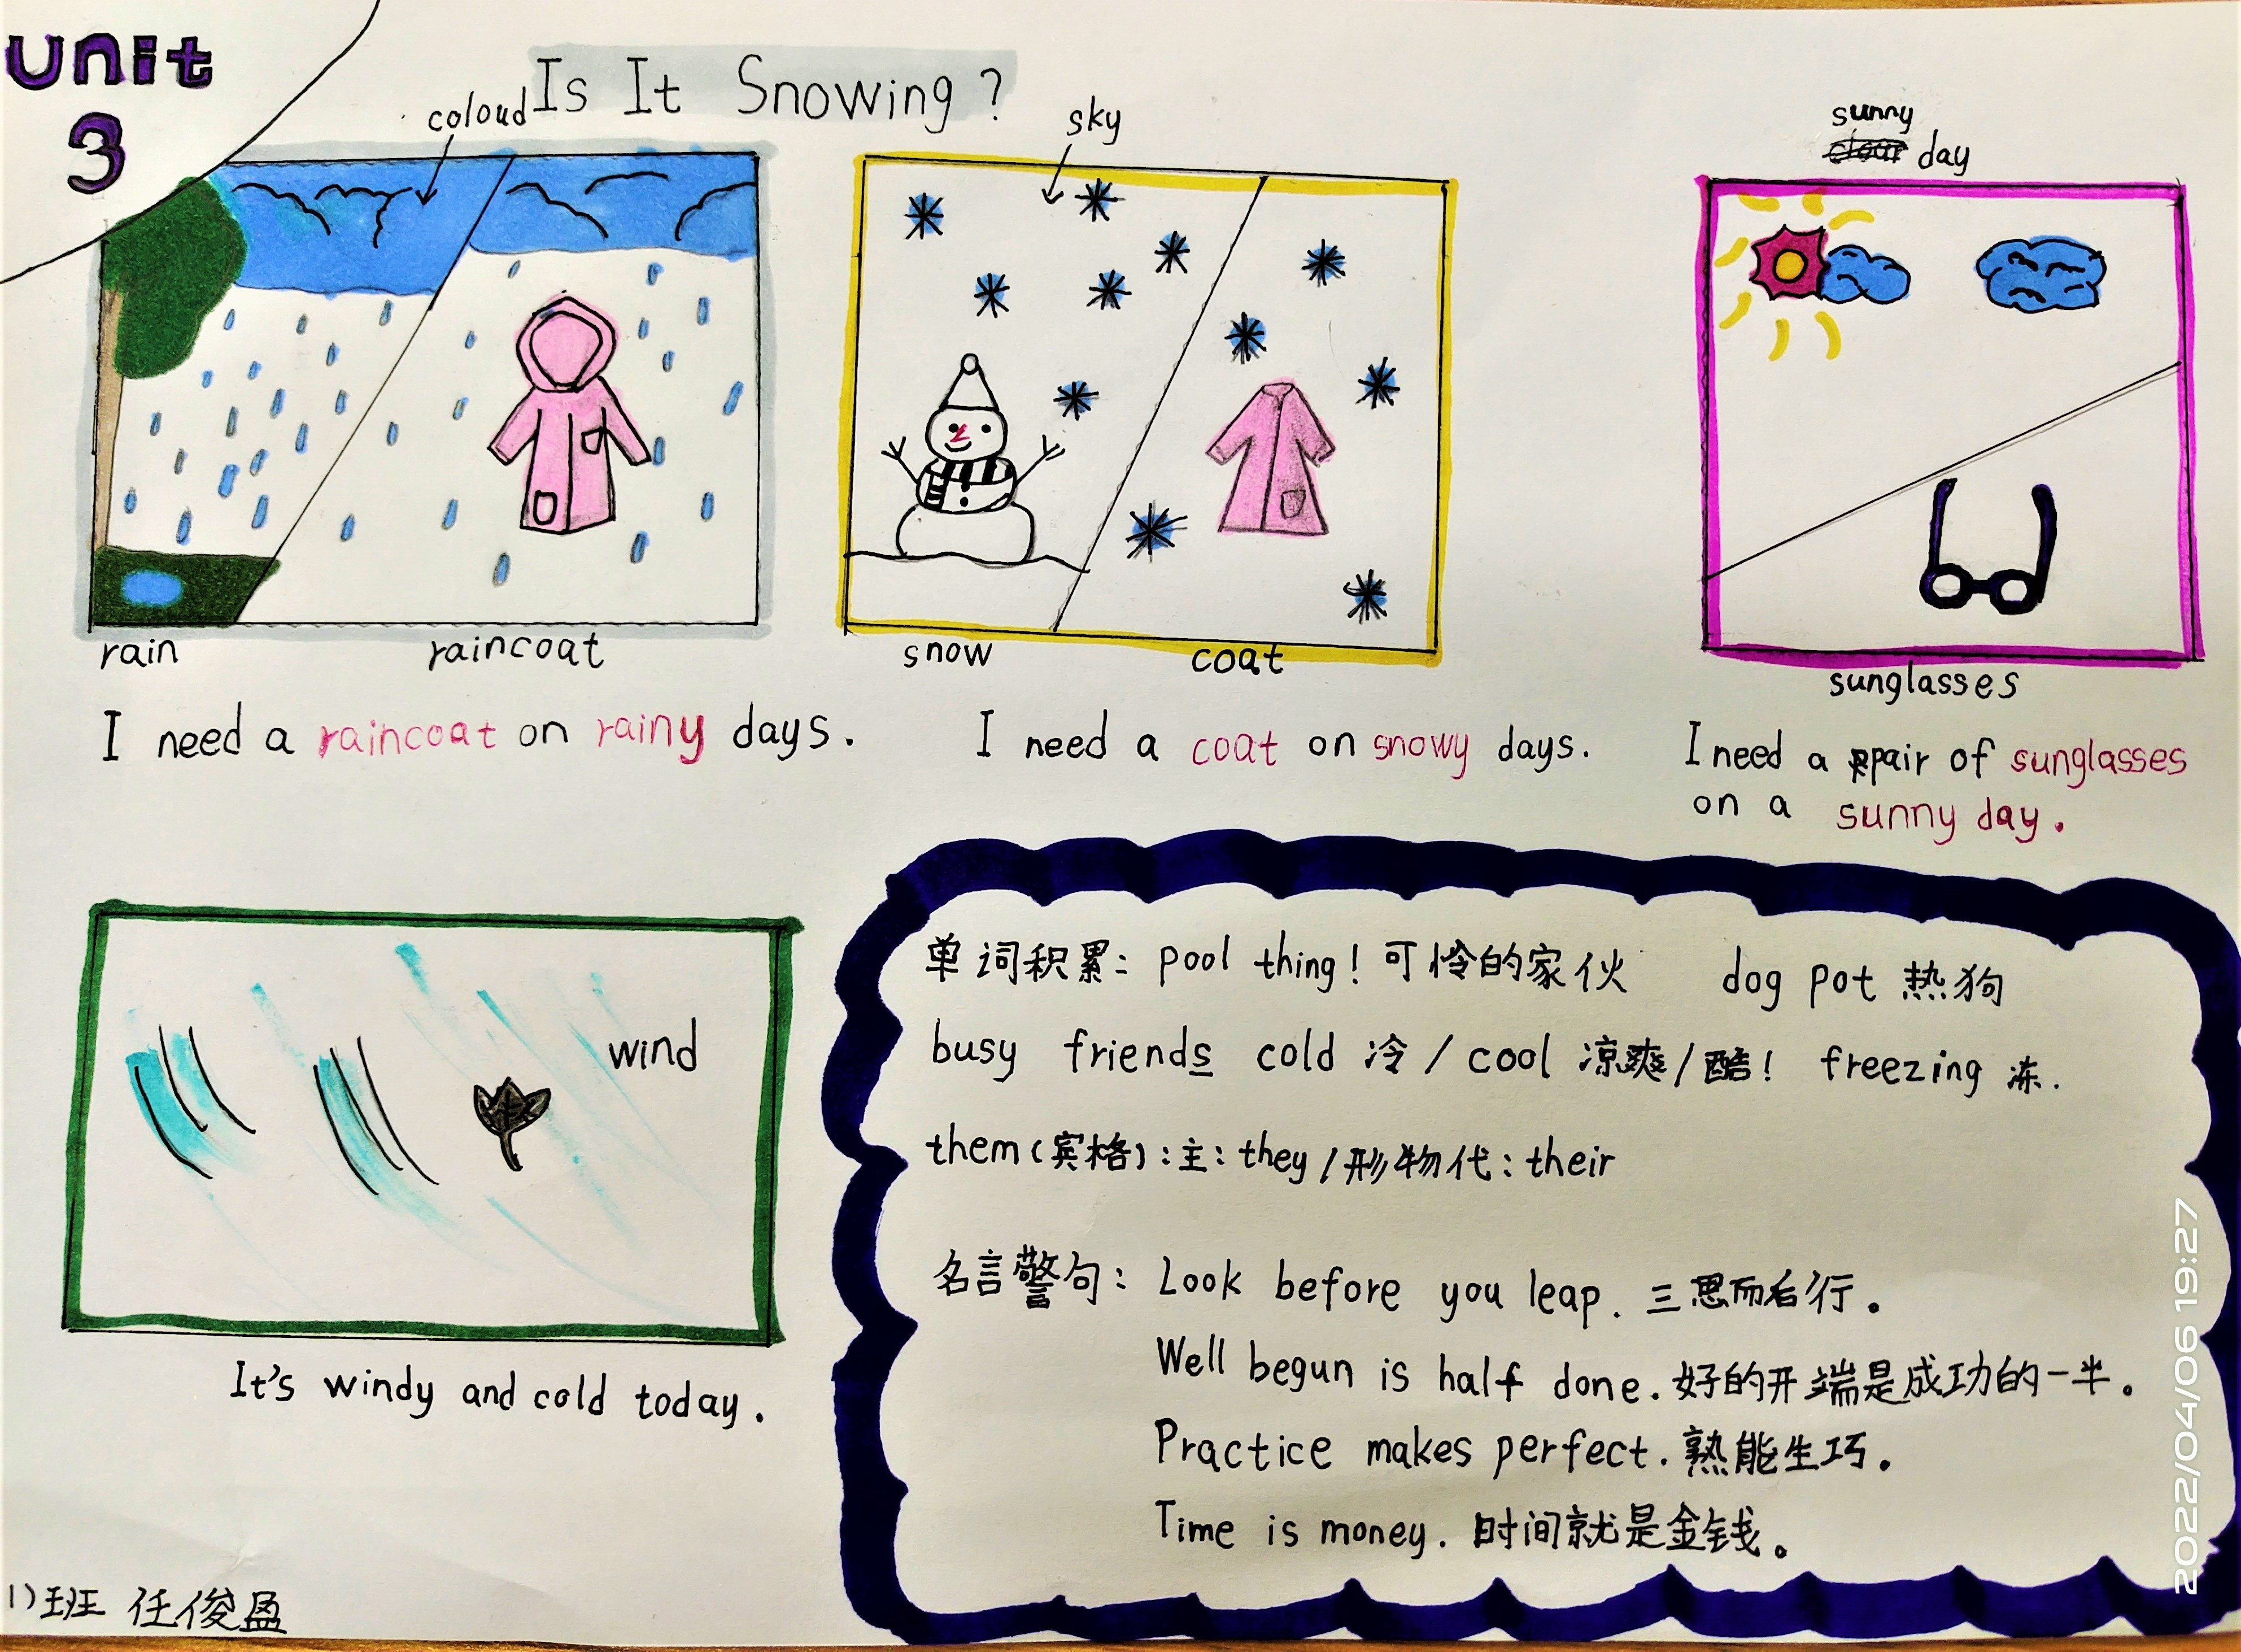 Unit
3
Is It Snowing?
coloud
sky
sunny
day
rain
raincoat
snow
coat
sunglasses
I need a raincoat on rainy days.
I need a coat on snowy days.
I need a pair of sunglasses
on a sunny day.
wind
It's windy and cold today.
单词积累: pool thing! 可怜的家伙 dog pot 热狗
busy friends cold 冷/cool 凉爽/酷! freezing 冻.
them(宾格):主:they/形物代:their
名言警句: Look before you leap. 三思而后行。
Well begun is half done. 好的开端是成功的一半。
Practice makes perfect. 熟能生巧。
Time is money. 时间就是金钱。
1)班 任俊盈
2022/04/06 19:27